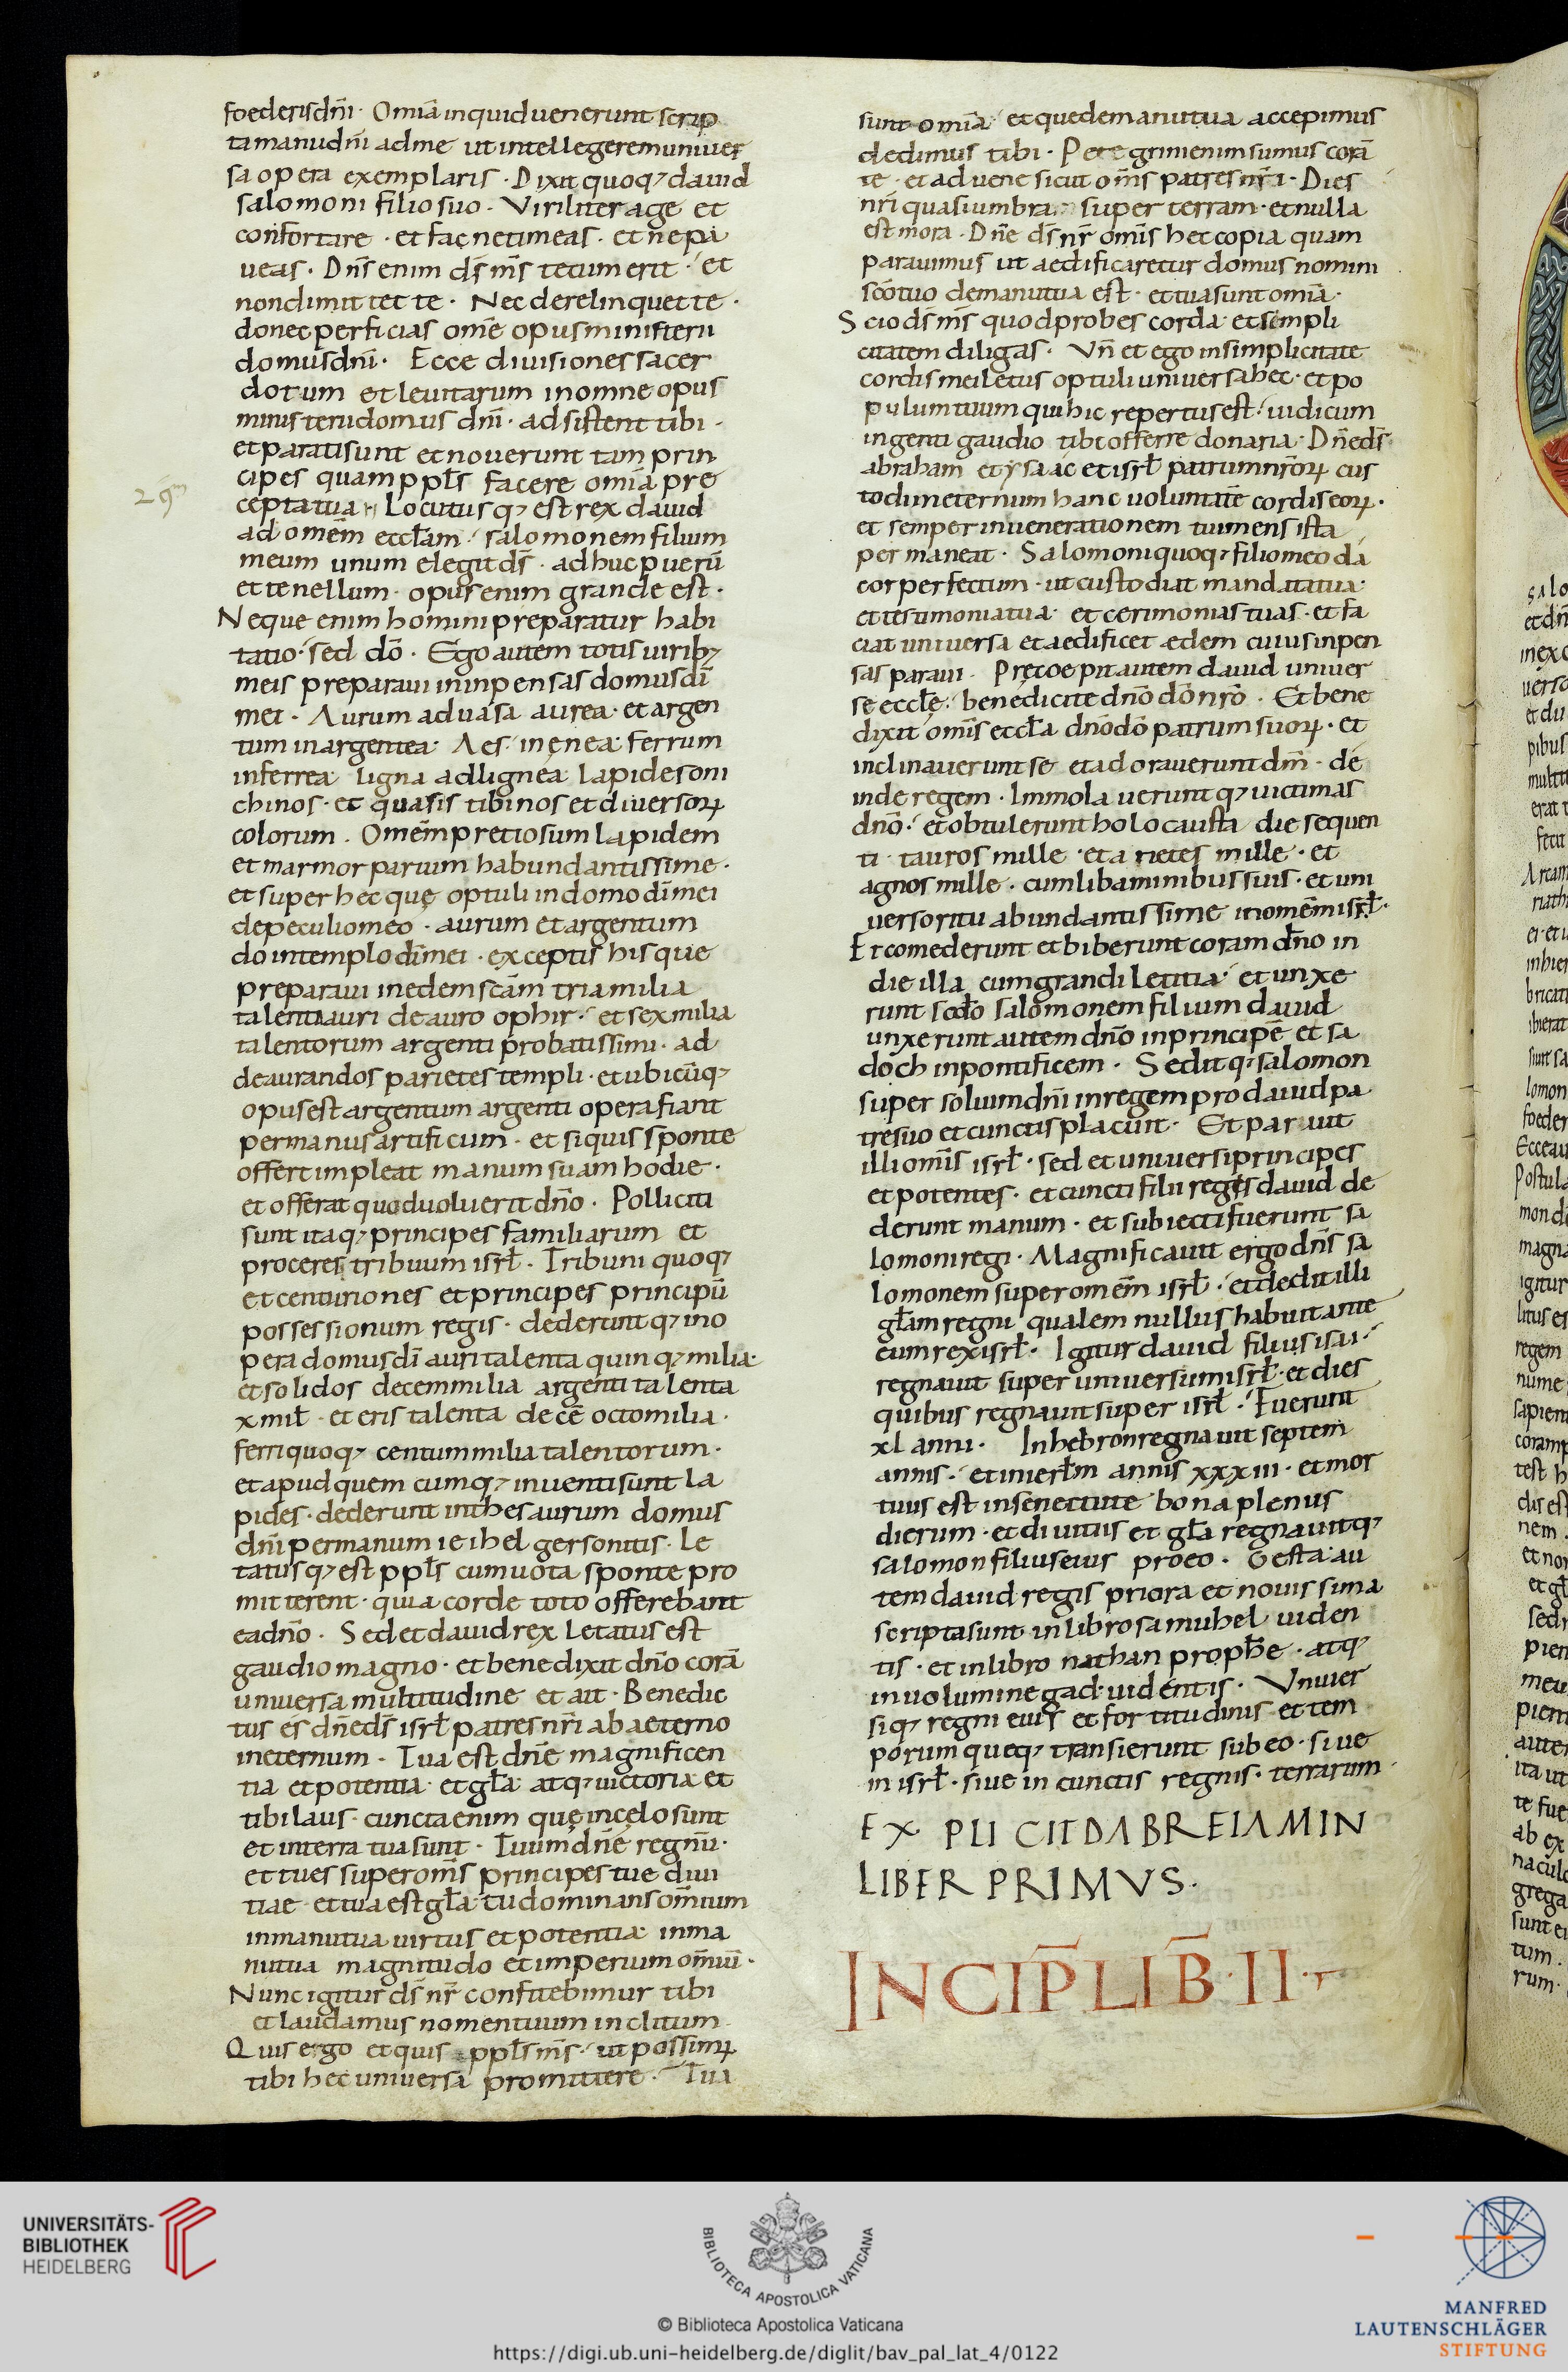 foederisdn̄i · Omīa inquid uenerunt scrip
tamanudn̄i adme ut intellegerem uniuer
sa opera exemplaris · Dixit quoq; dauid
salomoni filio suo · Viriliter age et
confortare · et fac netimeas · et nepa
ueas · Dn̄s enim ds̄ m̄s tecum erit · et
nondimittet te · Nec derelinquet te ·
donec perficias om̄e opus ministerii
domusdn̄i · Ecce diuisiones sacer
dotum et leuitarum inomne opus
ministerii domus dn̄i · adsistent tibi ·
et parati sunt et nouerunt tam prin
cipes quam ppls̄ facere omīa pre
cepta tua · Locutus q; est rex dauid
ad omēm eccłam · salomonem filium
meum unum elegit ds̄ · adhuc puerū
et tenellum · opus enim grande est ·
Neque enim homini preparatur habi
tatio · sed dō · Ego autem totis uirib;
meis preparaui ininpensas domus dī
mei · Aurum aduasa aurea · et argen
tum inargentea · Aes · in ęnea · ferrum
inferrea · ligna adlignea · lapides oni
chinos · et quasis tibinos et diuersoꝝ
colorum · Omēm pretiosum lapidem
et marmor parium habundantissime ·
et super hec quę optuli in domo dī mei
de peculio meo · aurum et argentum
do intemplo dī mei · exceptis his que
preparaui inedem scām tria milia
talenta auri de auro ophir · et sex milia
talentorum argenti probatissimi · ad
deaurandos parietes templi · et ubicūq;
opus est argentum argenti opera fiant
per manus artificum · et siquis sponte
offert impleat manum suam hodie ·
et offerat quod uoluerit dn̄o · Polliciti
sunt itaq; principes familiarum et
proceres tribuum isrł · Tribuni quoq;
et centuriones et principes principū
possessionum regis · dederunt q; ino
pera domus dī auri talenta quinq; milia ·
et solidos decem milia argenti talenta
x mił · et eris talenta decē octo milia ·
ferri quoq; centum milia talentorum ·
et apud quem cumq; inuenti sunt la
pides · dederunt in thesaurum domus
dn̄i per manum ieihel gersonitis · Le
tatus q; est ppls̄ cum uota sponte pro
mitterent · quia corde toto offerebant
ea dn̄o · Sed et dauid rex letatus est
gaudio magno · et benedixit dn̄o corā
uniuersa multitudine et ait · Benedic
tus es dn̄e ds̄ isrł patres nr̄i ab aeterno
ineternum · Tua est dn̄e magnificen
tia et potentia et gła atq; uictoria et
tibi laus · cuncta enim quę in celo sunt
et in terra tua sunt · Tuum dn̄e regnū ·
et tu es super om̄s principes tue diui
tiae · et tua est gła · tu dominans omīum
in manu tua uirtus et potentia in ma
nu tua magnitudo et imperium omīū ·
Nunc igitur ds̄ nr̄ confitebimur tibi
et laudamus nomen tuum inclitum
Quis ergo et quis ppls̄ m̄s · ut possimꝝ
tibi hec uniuersa promittere · Tua
29m
sunt omīa · et que de manu tua accepimus
dedimus tibi · Peregrini enim sumus corā
te · et aduene sicut om̄s patres nr̄i · Dies
nr̄i quasi umbra super terram · et nulla
est mora · Dn̄e ds̄ nr̄ om̄is hec copia quam
parauimus ut aedificaretur domus nomini
scō tuo de manu tua est · et tua sunt omīa ·
Scio ds̄ m̄s quod probes corda et simpli
citatem diligas · Vn̄ et ego in simplicitate
cordis mei letus optuli uniuersa hec · et po
pulum tuum qui hic repertus est · uidi cum
ingenti gaudio tibi offerre donaria · Dn̄e ds̄
abraham et ysaac et isrł patrum nr̄oꝝ cus
todi in eternum hanc uoluntatē cordis eoꝝ ·
et semper in uenerationem tui mens ista
permaneat · Salomoni quoq; filio meo da
cor perfectum · ut custodiat mandata tua ·
et testimonia tua · et cerimonias tuas · et fa
ciat uniuersa et aedificet aedem cuius inpen
sas paraui · Pręcoepit autem dauid uniuer
se eccłę · benedicite dn̄o dō nr̄o · Et bene
dixit om̄is eccła dn̄o dō patrum suoꝝ · et
inclinauerunt se et adorauerunt dm̄ · de
inde regem · Immolauerunt q; uictimas
dn̄o · et obtulerunt holocausta die sequen
ti · tauros mille · et arietes mille · et
agnos mille · cum libaminibus suis · et uni
uerso ritu abundantissime in omēm isrł ·
Et comederunt et biberunt coram dn̄o in
die illa cum grandi letitia · et unxe
runt scdo salomonem filium dauid
unxerunt autem dn̄o in principē et sa
doch in pontificem · Sedit q; salomon
super solium dn̄i in regem pro dauid pa
tre suo et cunctis placuit · Et paruit
illi om̄is isrł · sed et uniuersi principes
et potentes · et cuncti filii regis dauid de
derunt manum · et subiecti fuerunt sa
lomoni regi · Magnificauit ergo dn̄s sa
lomonem super omēm isrł · et dedit illi
głam regni qualem nullus habuit ante
eum rex isrł · Igitur dauid filius isai ·
regnauit super uniuersum isrł · et dies
quibus regnauit super isrł · Fuerunt
xl anni · In hebron regnauit septem
annis · et in ierłm annis xxxiii · et mor
tuus est in senectute bona plenus
dierum · et diuitiis et gła regnauitq;
salomon filius eius pro eo · Gesta au
tem dauid regis priora et nouissima
scripta sunt in libro samuhel uiden
tis · et in libro nathan prophe · atq;
in uolumine gad uidentis · Vniuer
siq; regni eius et fortitudinis et tem
porum queq; transierunt sub eo · siue
in isrł · siue in cunctis regnis · terrarum
EXPLICIT DABREIAMIN
LIBER PRIMVS ·
INCIP̄ LIB̄ · II ·
UNIVERSITÄTS-
BIBLIOTHEK
HEIDELBERG
BIBLIOTECA APOSTOLICA VATICANA
© Biblioteca Apostolica Vaticana
https://digi.ub.uni-heidelberg.de/diglit/bav_pal_lat_4/0122
MANFRED
LAUTENSCHLÄGER
STIFTUNG